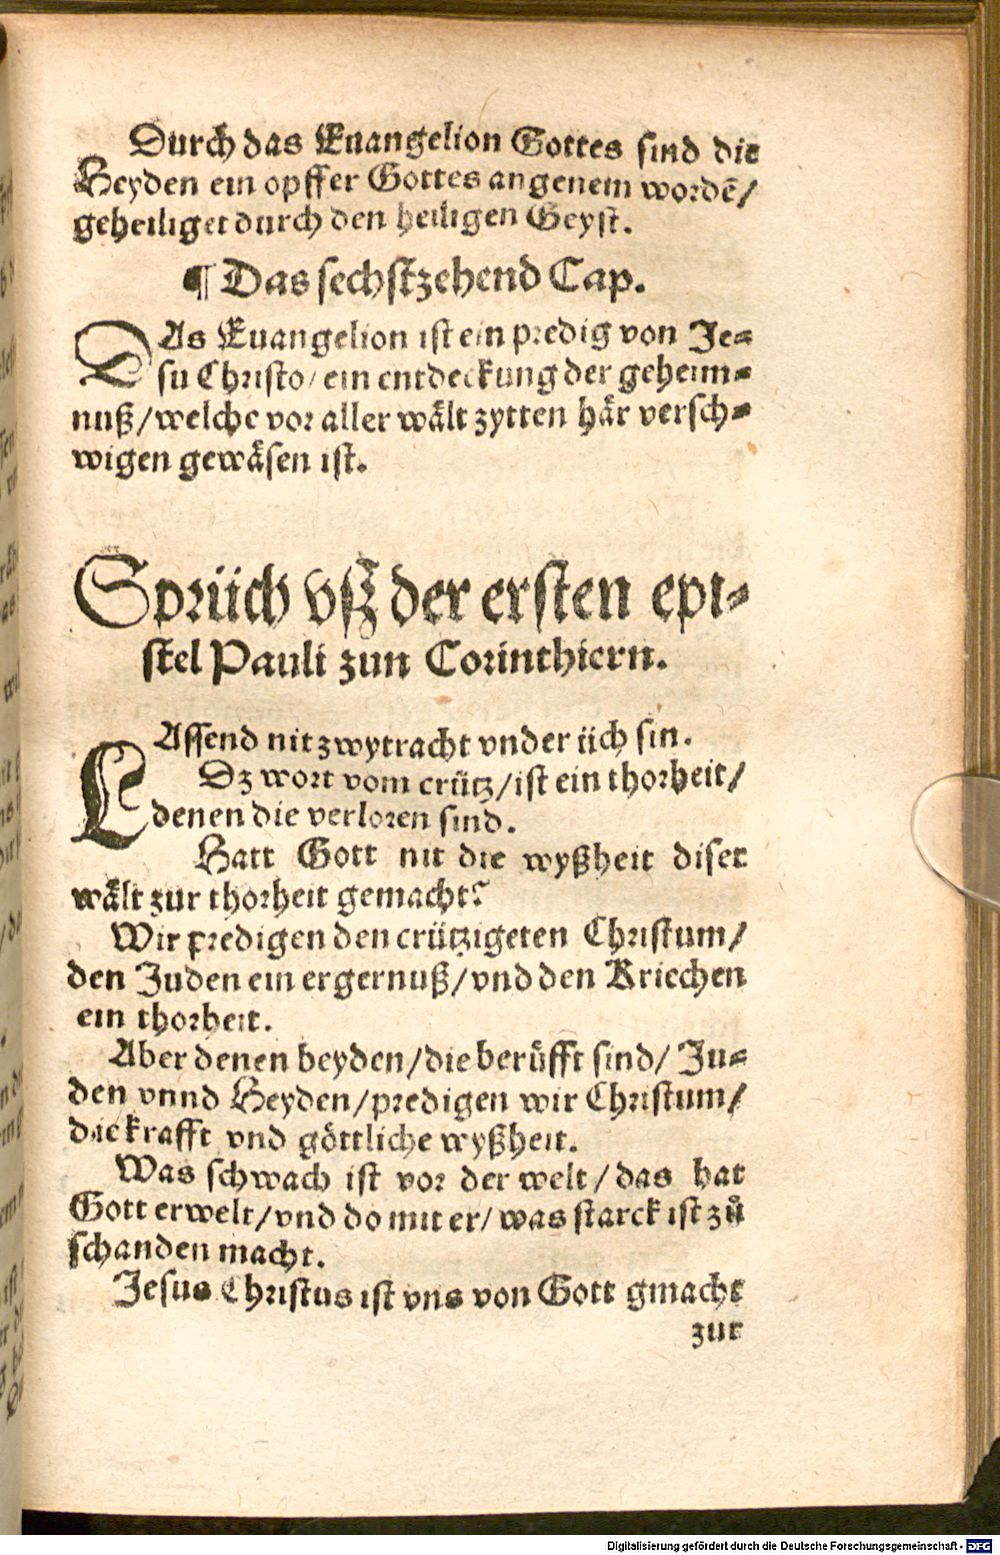 Durch das Euangelion Gottes sind die
Heyden ein opffer Gottes angenem wordē/
geheiliget durch den heiligen Geyst.
¶ Das sechstzehend Cap.
DAs Euangelion ist ein predig von Je-
su Christo/ ein entdeckung der geheim-
nuß/welche vor aller wält zytten här versch-
wigen gewäsen ist.
Sprüch vß der ersten epi-
stel Pauli zun Corinthiern.
LAssend nit zwytracht vnder üch sin.
Dz wort vom crütz/ist ein thorheit/
denen die verloren sind.
Hatt Gott nit die wyßheit diser
wält zur thorheit gemacht?
Wir predigen den crützigeten Christum/
den Juden ein ergernuß/vnd den Kriechen
ein thorheit.
Aber denen beyden/die berüfft sind/ Ju-
den vnnd Heyden/predigen wir Christum/
die krafft vnd göttliche wyßheit.
Was schwach ist vor der welt/das hat
Gott erwelt/vnd do mit er/ was starck ist zů
schanden macht.
Jesus Christus ist vns von Gott gmacht
zur
Digitalisierung gefördert durch die Deutsche Forschungsgemeinschaft - DFG